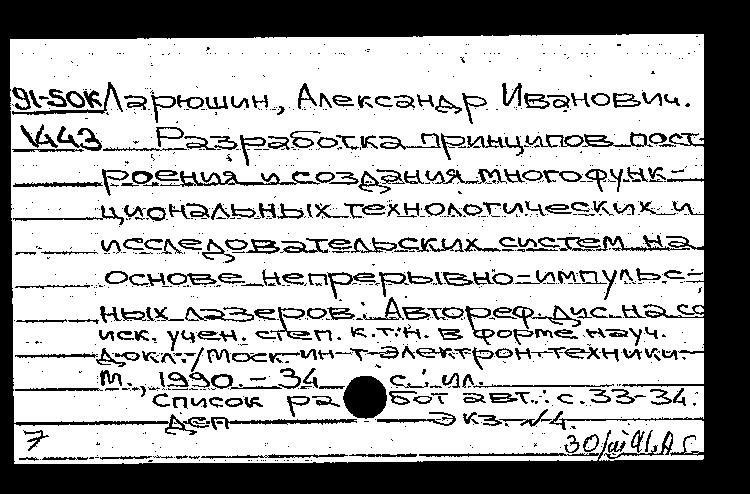 91-50К Ларюшин, Александр Иванович.
V443 Разработка принципов пост-
роения и создания многофунк-
циональных технологических и
исследовательских систем на
основе непрерывно-импульс-
ных лазеров: Автореф. дис. на со
иск. учен. степ. к.т.н. в форме науч.
докл. / Моск. ин-т электрон. техники.-
М., 1990. - 34 с.: ил.
Список работ авт.: с. 33-34.
Деп Экз. N4.
7